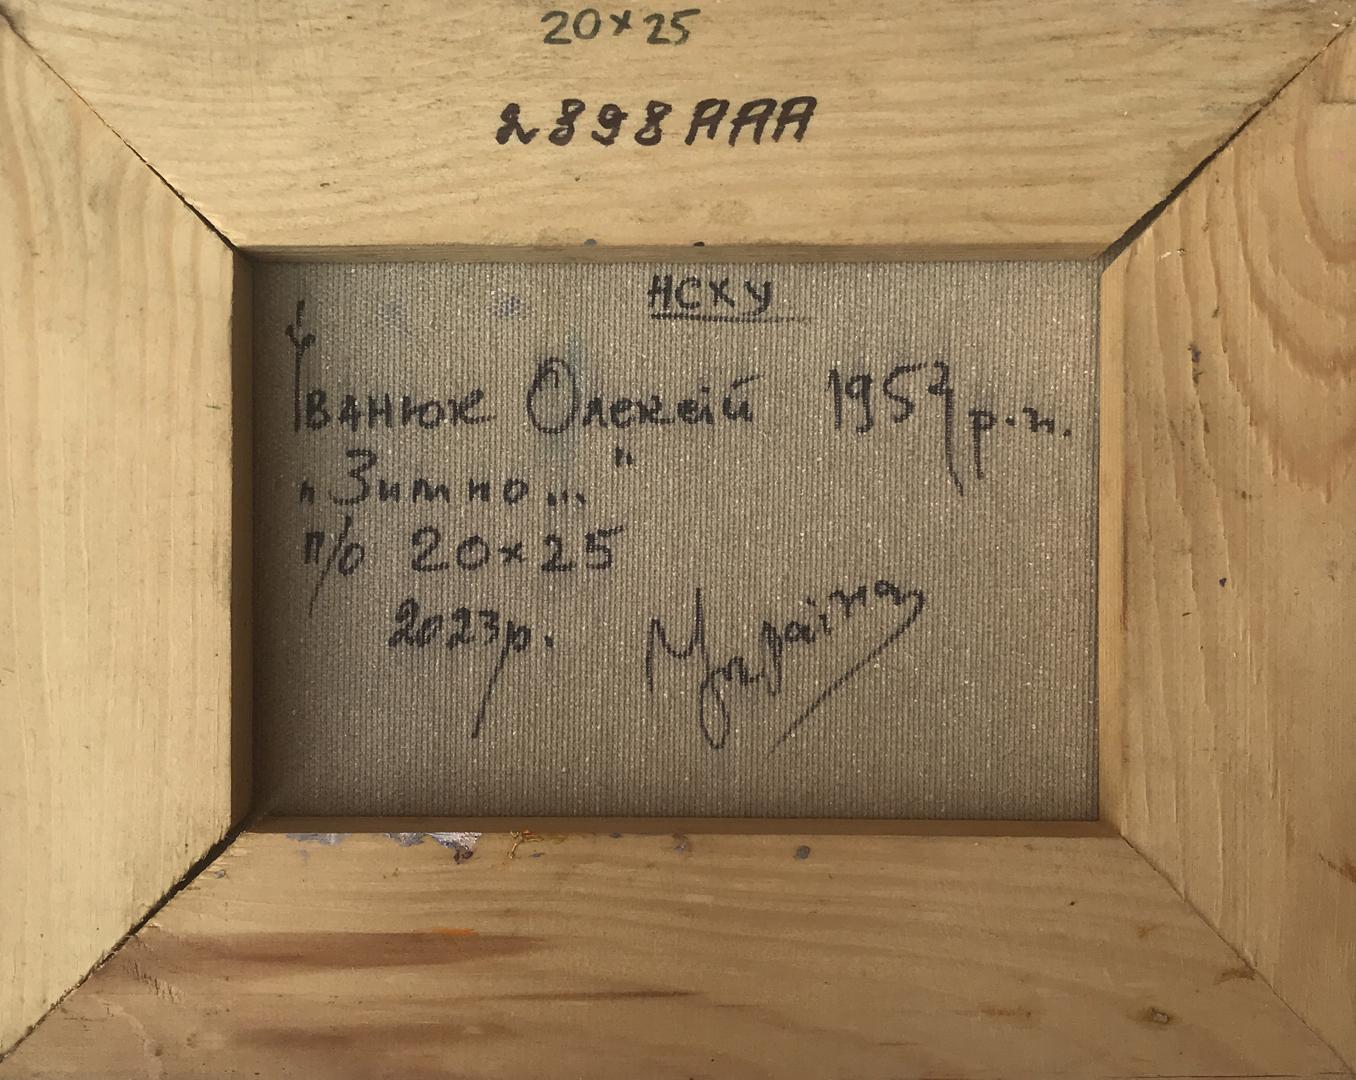 20×25
2898ААА
НСХУ
Іванюк Олексій 1957 р.н.
„Зимно..."
п/о 20×25
2023р. Україна